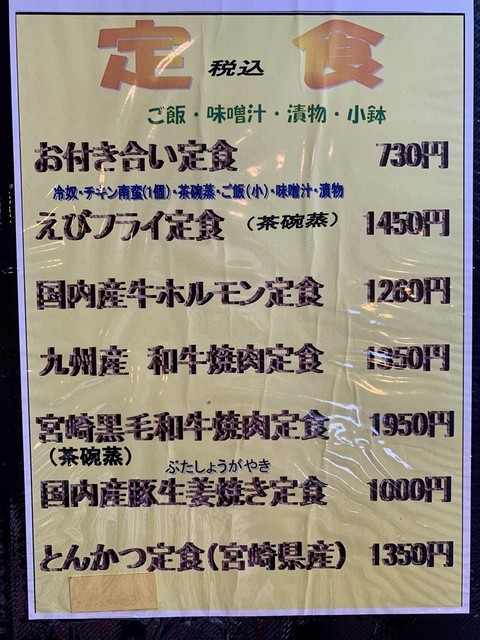 定 税込 食
ご飯・味噌汁・漬物・小鉢
お付き合い定食 730円
冷奴・チキン南蛮(1個)・茶碗蒸・ご飯(小)・味噌汁・漬物
えびフライ定食 (茶碗蒸) 1450円
国内産牛ホルモン定食 1260円
九州産 和牛焼肉定食 1350円
宮崎黒毛和牛焼肉定食 1950円
(茶碗蒸)
ぶたしょうがやき
国内産豚生姜焼き定食 1000円
とんかつ定食(宮崎県産) 1350円